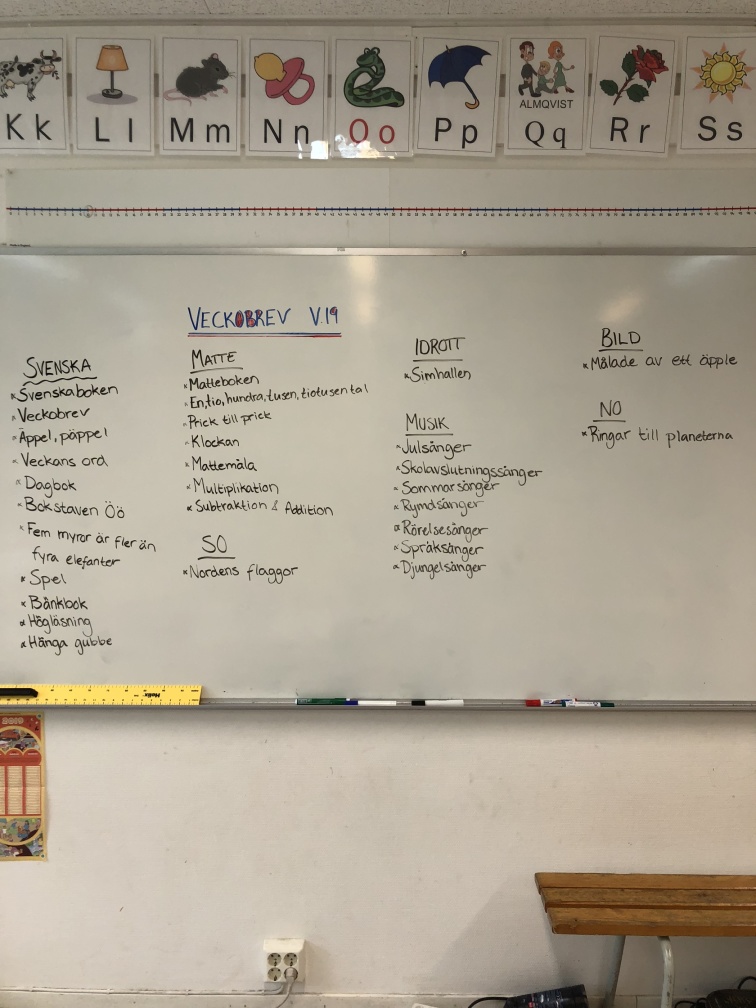 Kk
Ll
Mm
Nn
Oo
Pp
ALMQVIST
Qq
Rr
Ss
VECKOBREV V.19
SVENSKA
* Svenskaboken
* Veckobrev
* Äppel, päppel
* Veckans ord
* Dagbok
* Bokstaven Öö
* Fem myror är fler än
fyra elefanter
* Spel
* Bänkbok
* Högläsning
* Hänga gubbe
MATTE
* Matteboken
* En, tio, hundra, tusen, tiotusental
* Prick till prick
* Klockan
* Mattemåla
* Multiplikation
* Subtraktion & Addition
SO
* Nordens flaggor
IDROTT
* Simhallen
MUSIK
* Julsånger
* Skolavslutningssånger
* Sommarsånger
* Rymdsånger
* Rörelsesånger
* Språksånger
* Djungelsånger
BILD
* Målade av ett äpple
NO
* Ringar till planeterna
2019